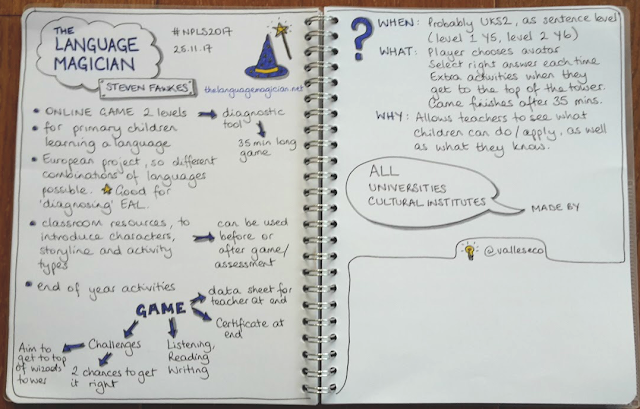 THE
LANGUAGE
MAGICIAN
STEVEN FAWKES
#NPLS2017
25.11.17
thelanguagemagician.net
ONLINE GAME 2 levels → diagnostic
tool
35 min long
game
for primary children
learning a language
European project, so different
combinations of languages
possible. Good for
'diagnosing' EAL.
classroom resources, to
introduce characters,
storyline and activity
types
can be used
before or
after game/
assessment
end of year activities
GAME
data sheet for
teacher at end
Certificate at
end
Listening,
Reading
Writing
Challenges
2 chances to get
it right
Aim to
get to top
of wizards
towers
? WHEN: Probably UKS2, as sentence level
(level 1 Y5, level 2 Y6)
WHAT: Player chooses avatar
Select right answer each time
Extra activities when they
get to the top of the tower.
Game finishes after 35 mins.
WHY: Allows teachers to see what
children can do/apply, as well
as what they know.
ALL
UNIVERSITIES
CULTURAL INSTITUTES
MADE BY
@valleseco